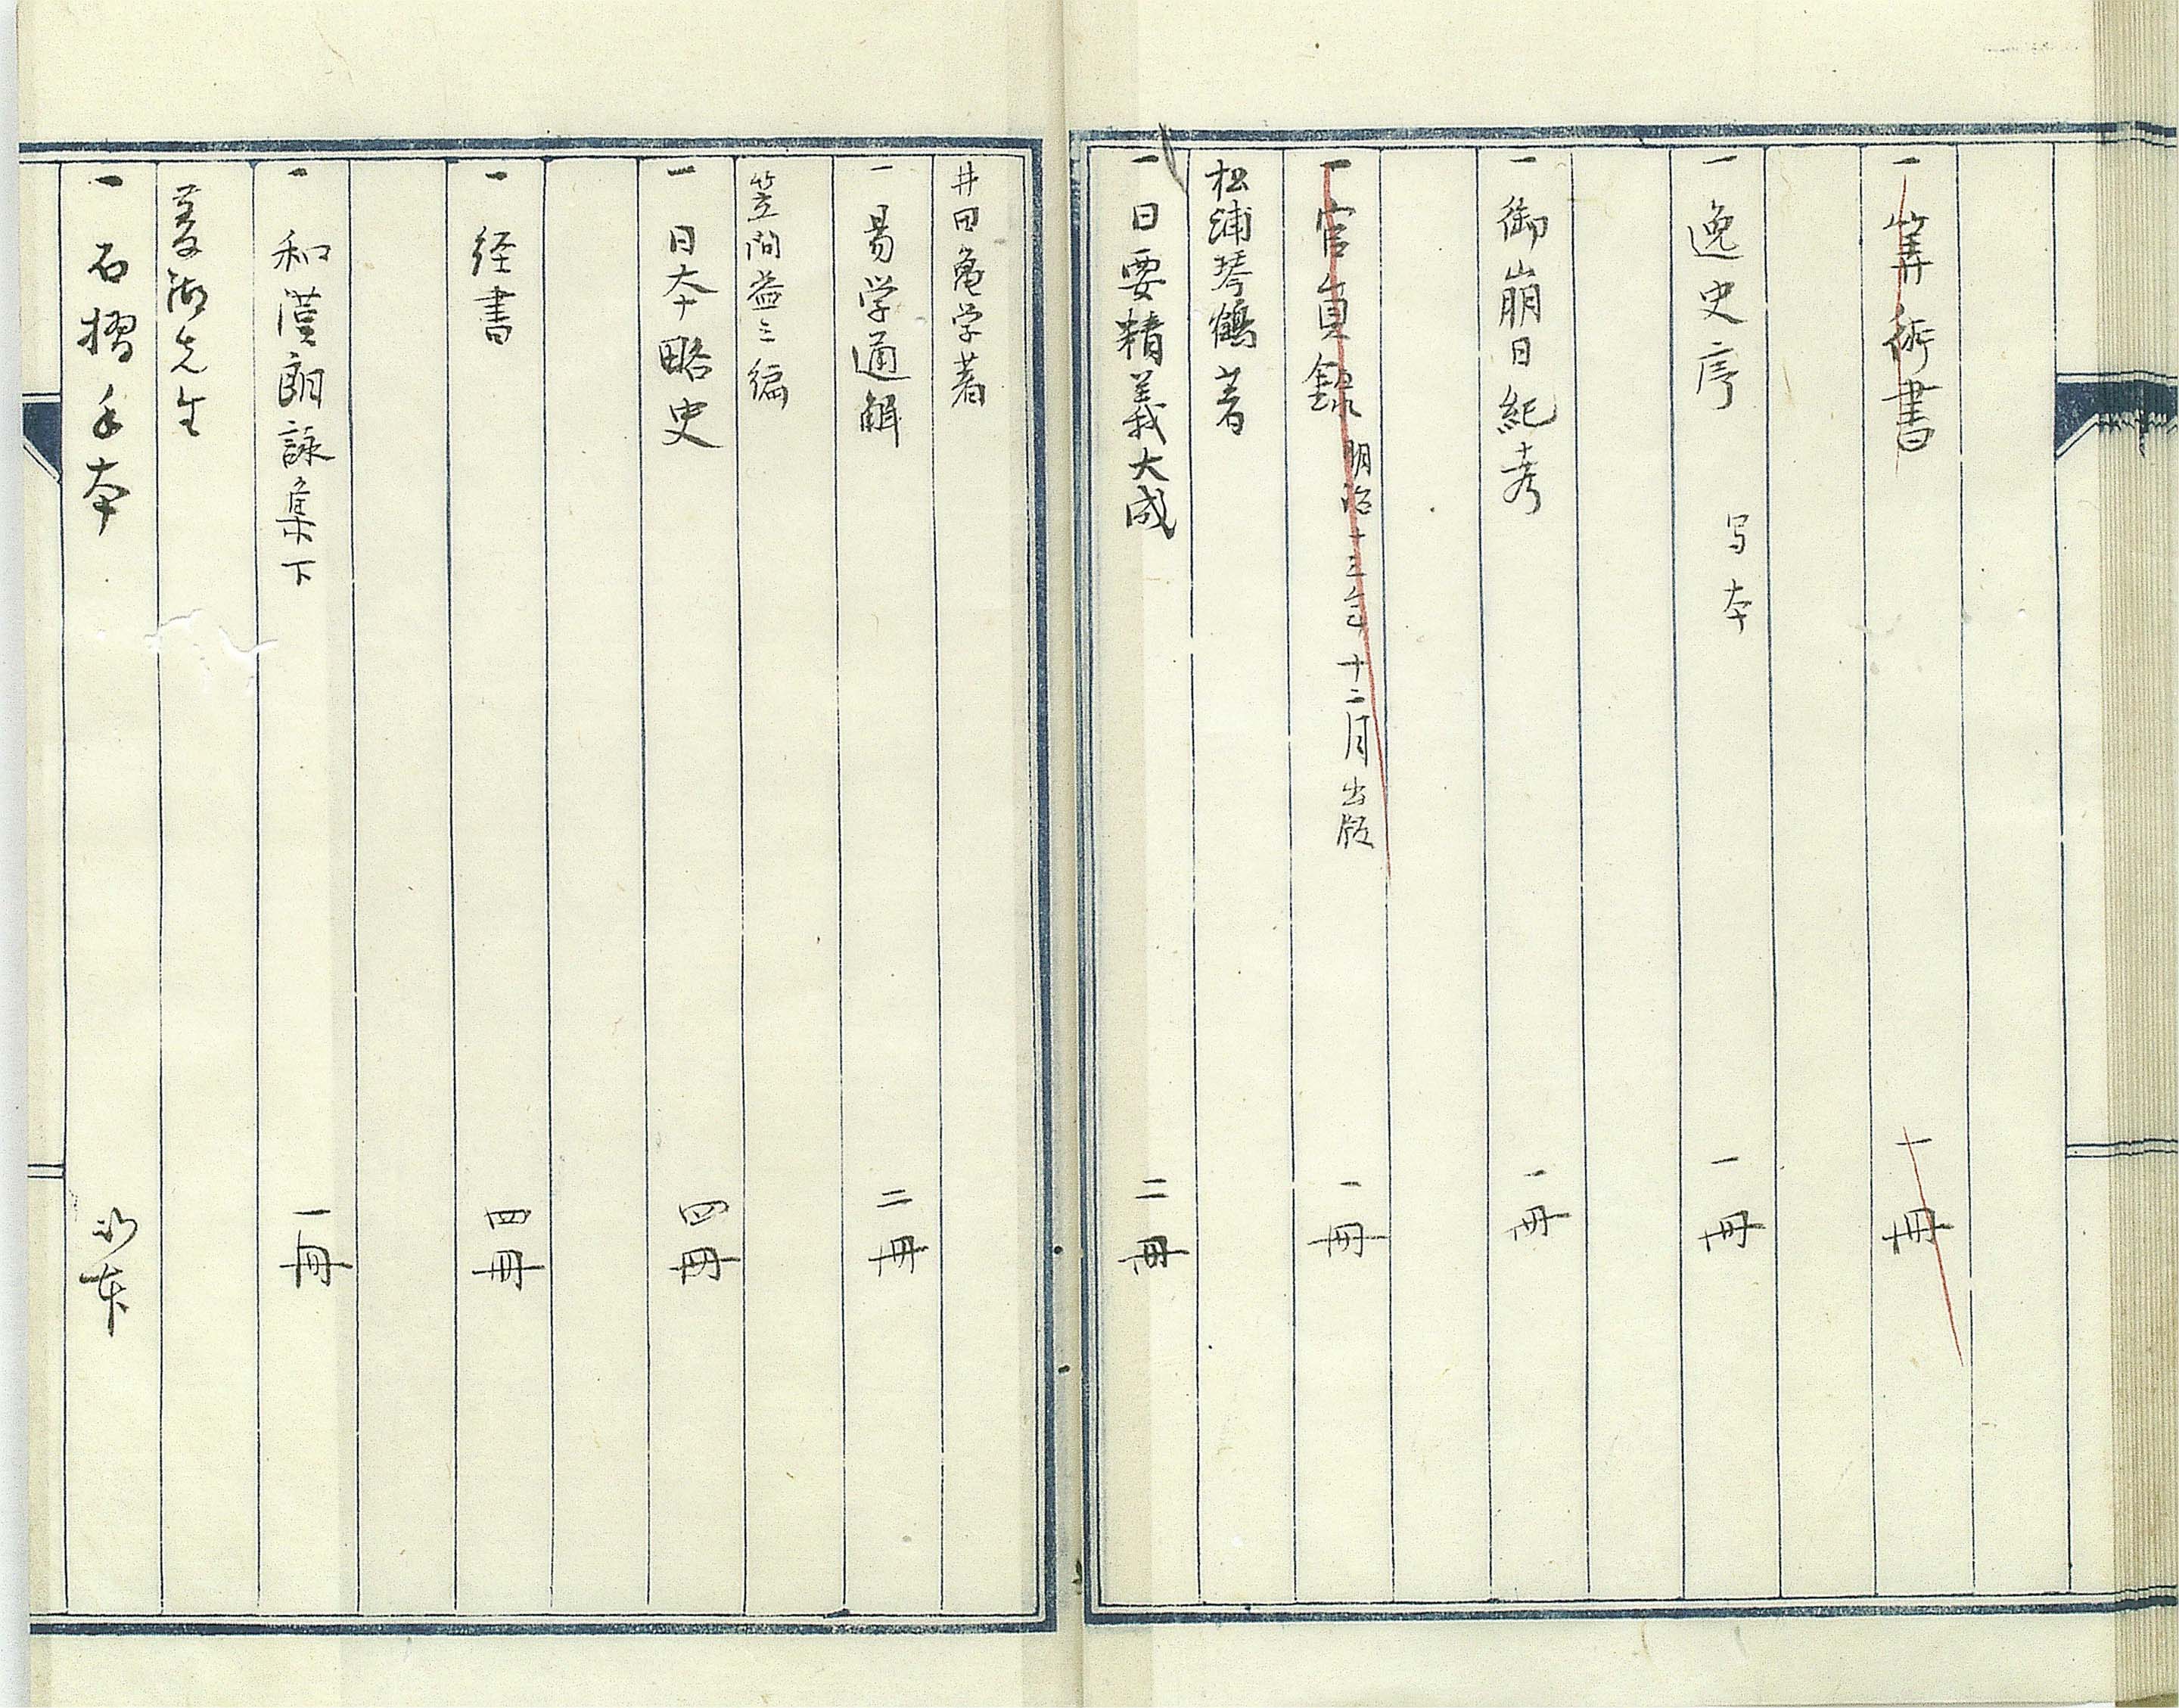 一 筭術書 一冊
一 逸史序 写本 一冊
一 御崩日紀考 一冊
一 官員録 明治十三年十二月出版 一冊
松浦琴鶴著
一 日要精義大成 二冊
井田亀学著
一 易学通解 二冊
笠間益三編
一 日本略史 四冊
一 経書 四冊
一 和漢朗詠集下 一冊
菱湖先生
一 石摺手本